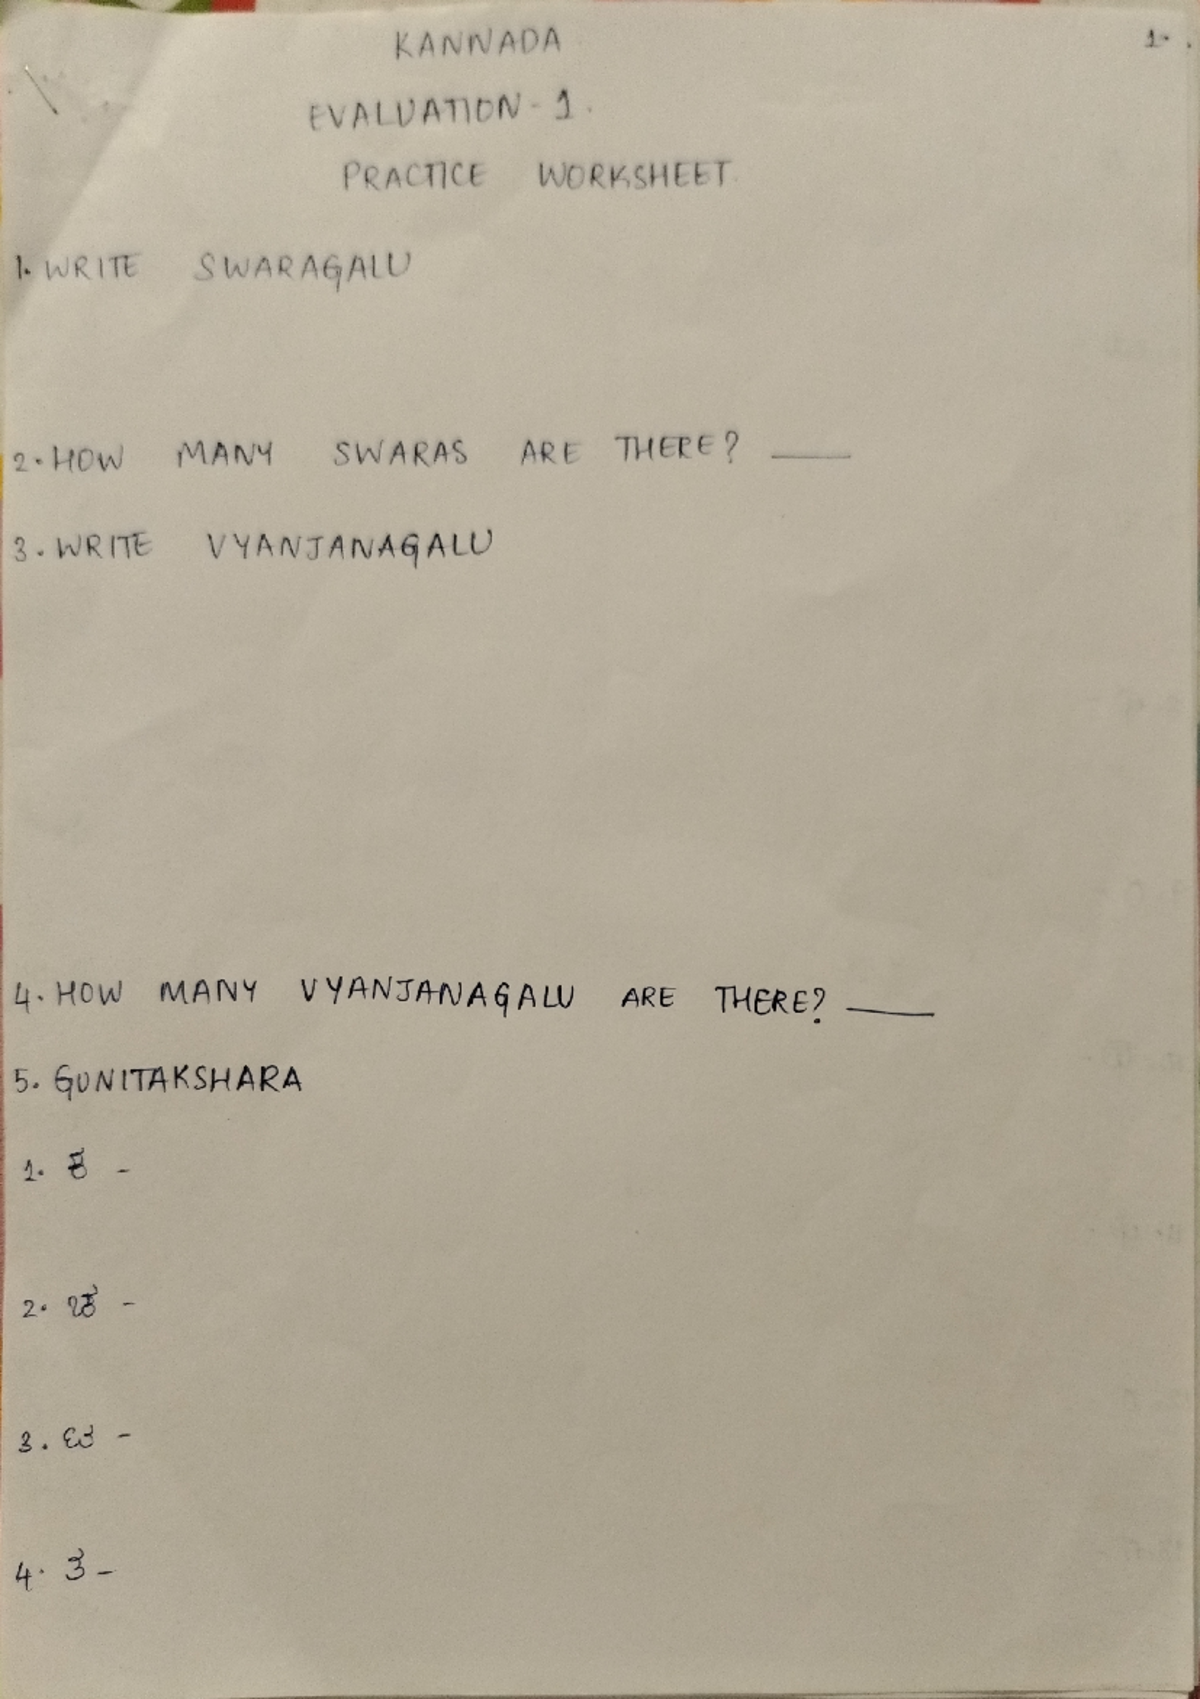 1.
KANNADA
EVALUATION - 1.
PRACTICE WORKSHEET.
1. WRITE SWARAGALU
2. HOW MANY SWARAS ARE THERE? ____
3. WRITE VYANJANAGALU
4. HOW MANY VYANJANAGALU ARE THERE? ____
5. GUNITAKSHARA
1. ಕ -
2. ಚ -
3. ಟ -
4. ತ -